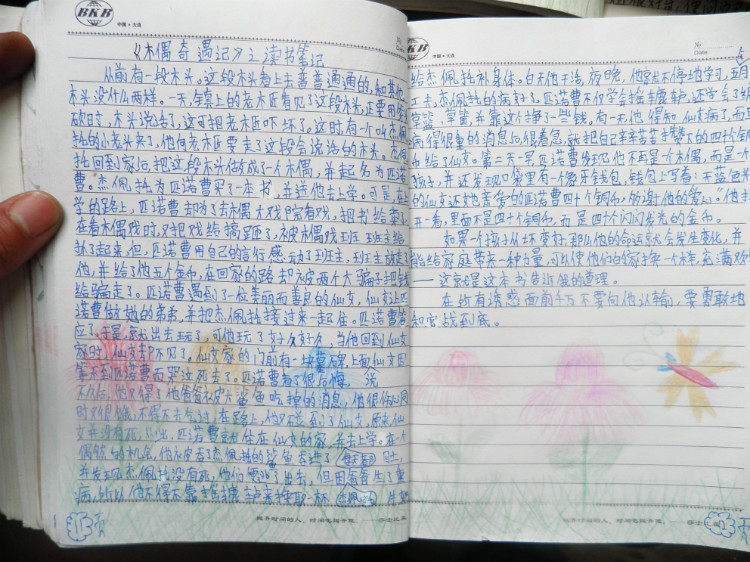 BKB
中国·大连
《木偶奇遇记》之读书笔记
从前有一段木头。这段木头看上去普普通通的，和其他
木头没什么两样。一天，年老的老木匠看见了这段木头，正要用
砍时，木头说话了，这可把老木匠吓坏了。这时，有一个叫杰佩
托的小老头来了，他向老木匠要走了这段会说话的木头。杰佩
托回到家后，把这段木头做成了一个木偶，并起名为匹诺
曹。杰佩托为匹诺曹买了一本书，并送他去上学。可是，在上
学的路上，匹诺曹却为了去木偶大戏院看戏，把书给卖了
在看木偶戏时，又把戏给搞砸了，被木偶戏班班主给
抓了起来，但，匹诺曹用自己的言行感动了班主，班主放走了
他，并给了他五个金币，在回家的路却被两个大骗子把钱
给骗走了。匹诺曹遇到了一位美丽而善良的仙女，仙女让匹
诺曹做她的弟弟，并把杰佩托接过来一起住。匹诺曹答
应了。于是，就出去玩了，可他玩了好久好久，当他回到仙女
家时，仙女却不见了。仙女家的门前有一块墓碑，上面仙女因
匹诺曹而哭泣死去了。匹诺曹为了很后悔
他又得了他爸爸被大鲨鱼吃掉的消息，他很伤心，同
时又很，不得不去，在路上，他又碰到了仙女，原来仙
女并没有死，匹诺曹就住在仙女的家，并去上学。在一个
偶然的机会，他被吞了杰佩托的鲨鱼吞进了肚里，
并发现杰佩托没有死，他们便逃了出去，但因爸爸生了重
病，所以他不得不靠
11页
给杰佩托补身体。白天他干活，夜晚，他就不停地学习，五月
工夫，杰佩托的病好了。匹诺曹不仅学会摇辘轳，还学会了编
篮，并靠这挣了一些钱。有一天，他得知仙女病了，而
病得很重的消息后很着急，就把自己辛辛苦苦攒下的四十个铜
币给了仙女。第二天一早，匹诺曹发现他不再是一个木偶，而是一个
孩子，并还发现口袋里有一个象牙钱包，钱包上写着：天蓝色头
的仙女还她亲爱的匹诺曹四十个铜币，感谢他的爱心。”他
一看，里面不是四十个铜币，而是四十个闪闪发光的金币。
如果一个孩子从坏变好，那么他的命运就会发生变化，并
能给家庭带来一种力量，可以使他们的家和一个样，充满欢
——这就是这本书告诉我的道理。
在所有诱惑面前千万不要向他认输，要勇敢地
和它战到底。